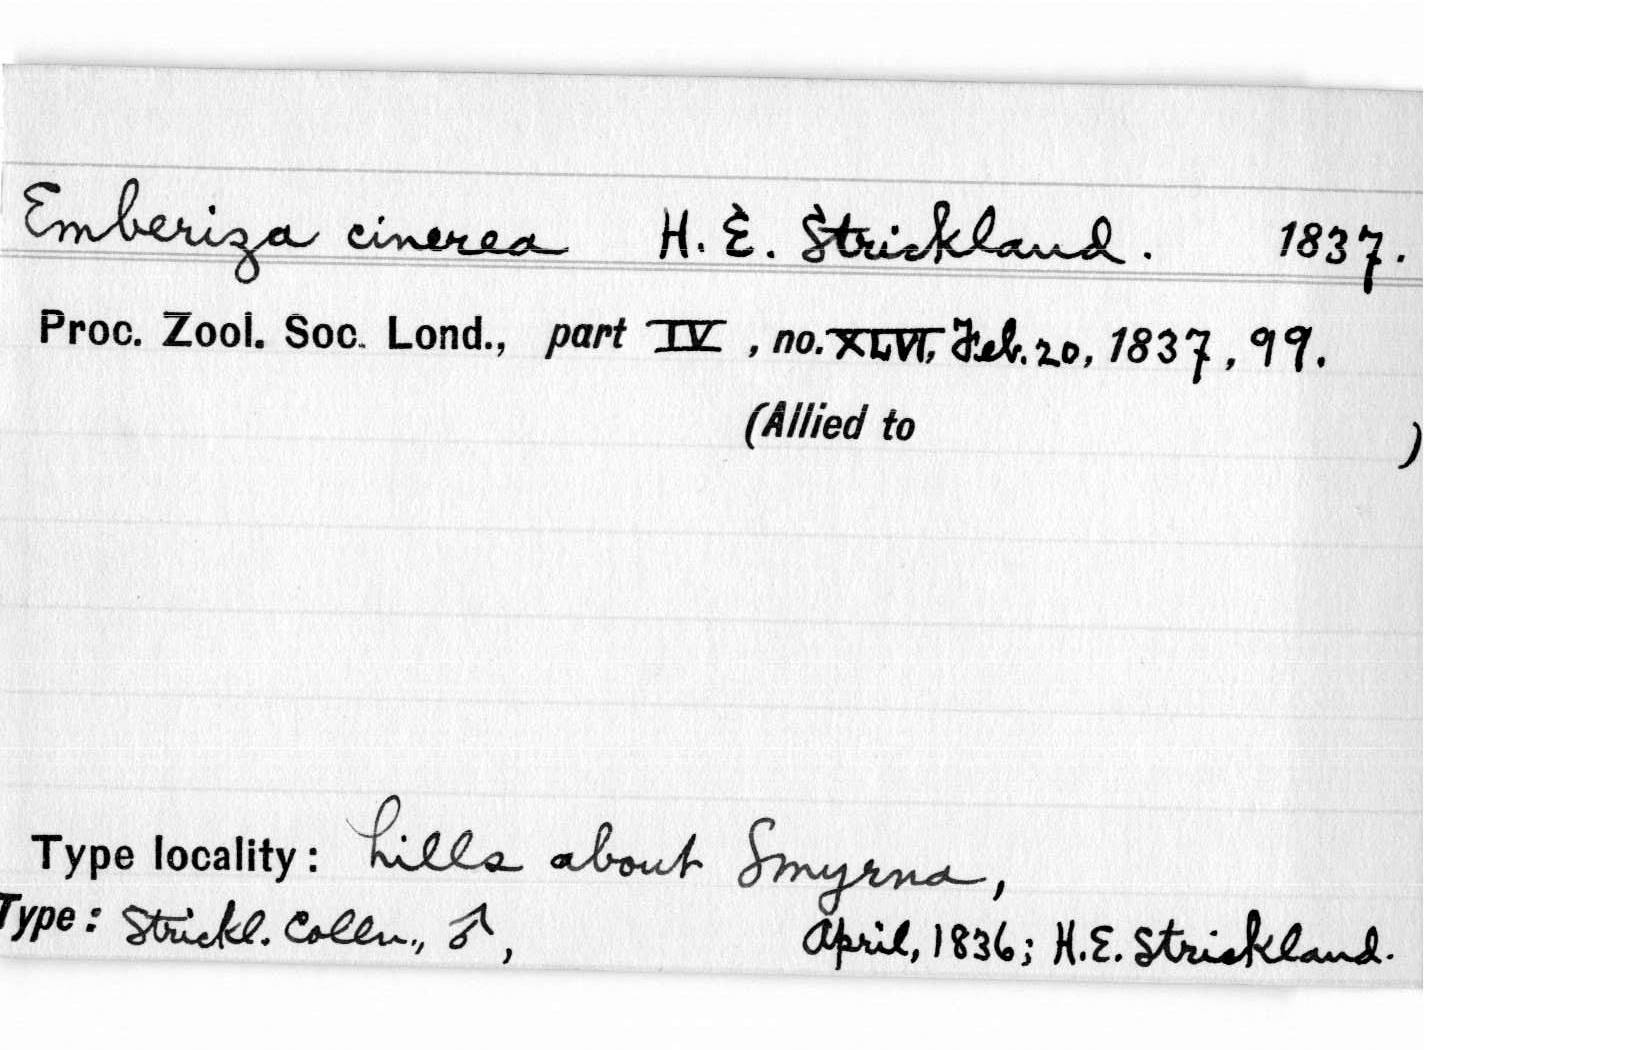 Emberiza cinerea H. E. Strickland. 1837.
Proc. Zool. Soc. Lond., part IV, no. XLVI, Feb. 20, 1837, 99.
(Allied to )
Type locality: hills about Smyrna,
Type: Strickl. Colln., ♂, April, 1836; H.E. Strickland.